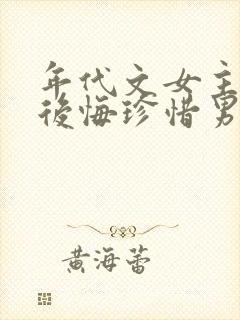 年代文女主
后悔珍惜男
黄海蕾